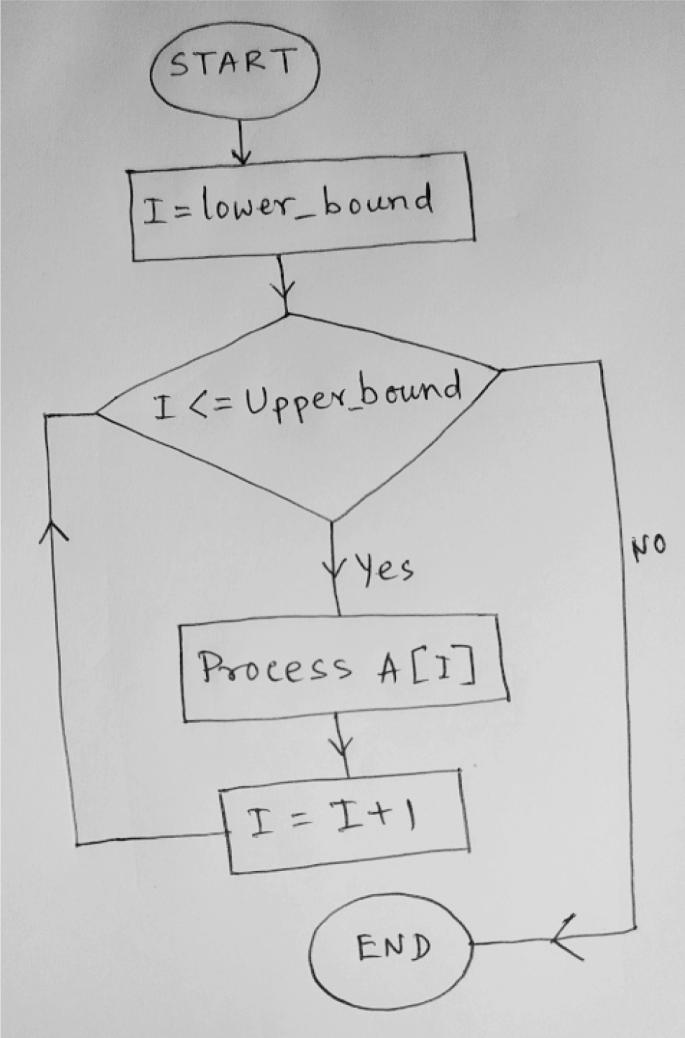 START
I = lower_bound
I <= Upper_bound
Yes
NO
Process A[I]
I = I+1
END